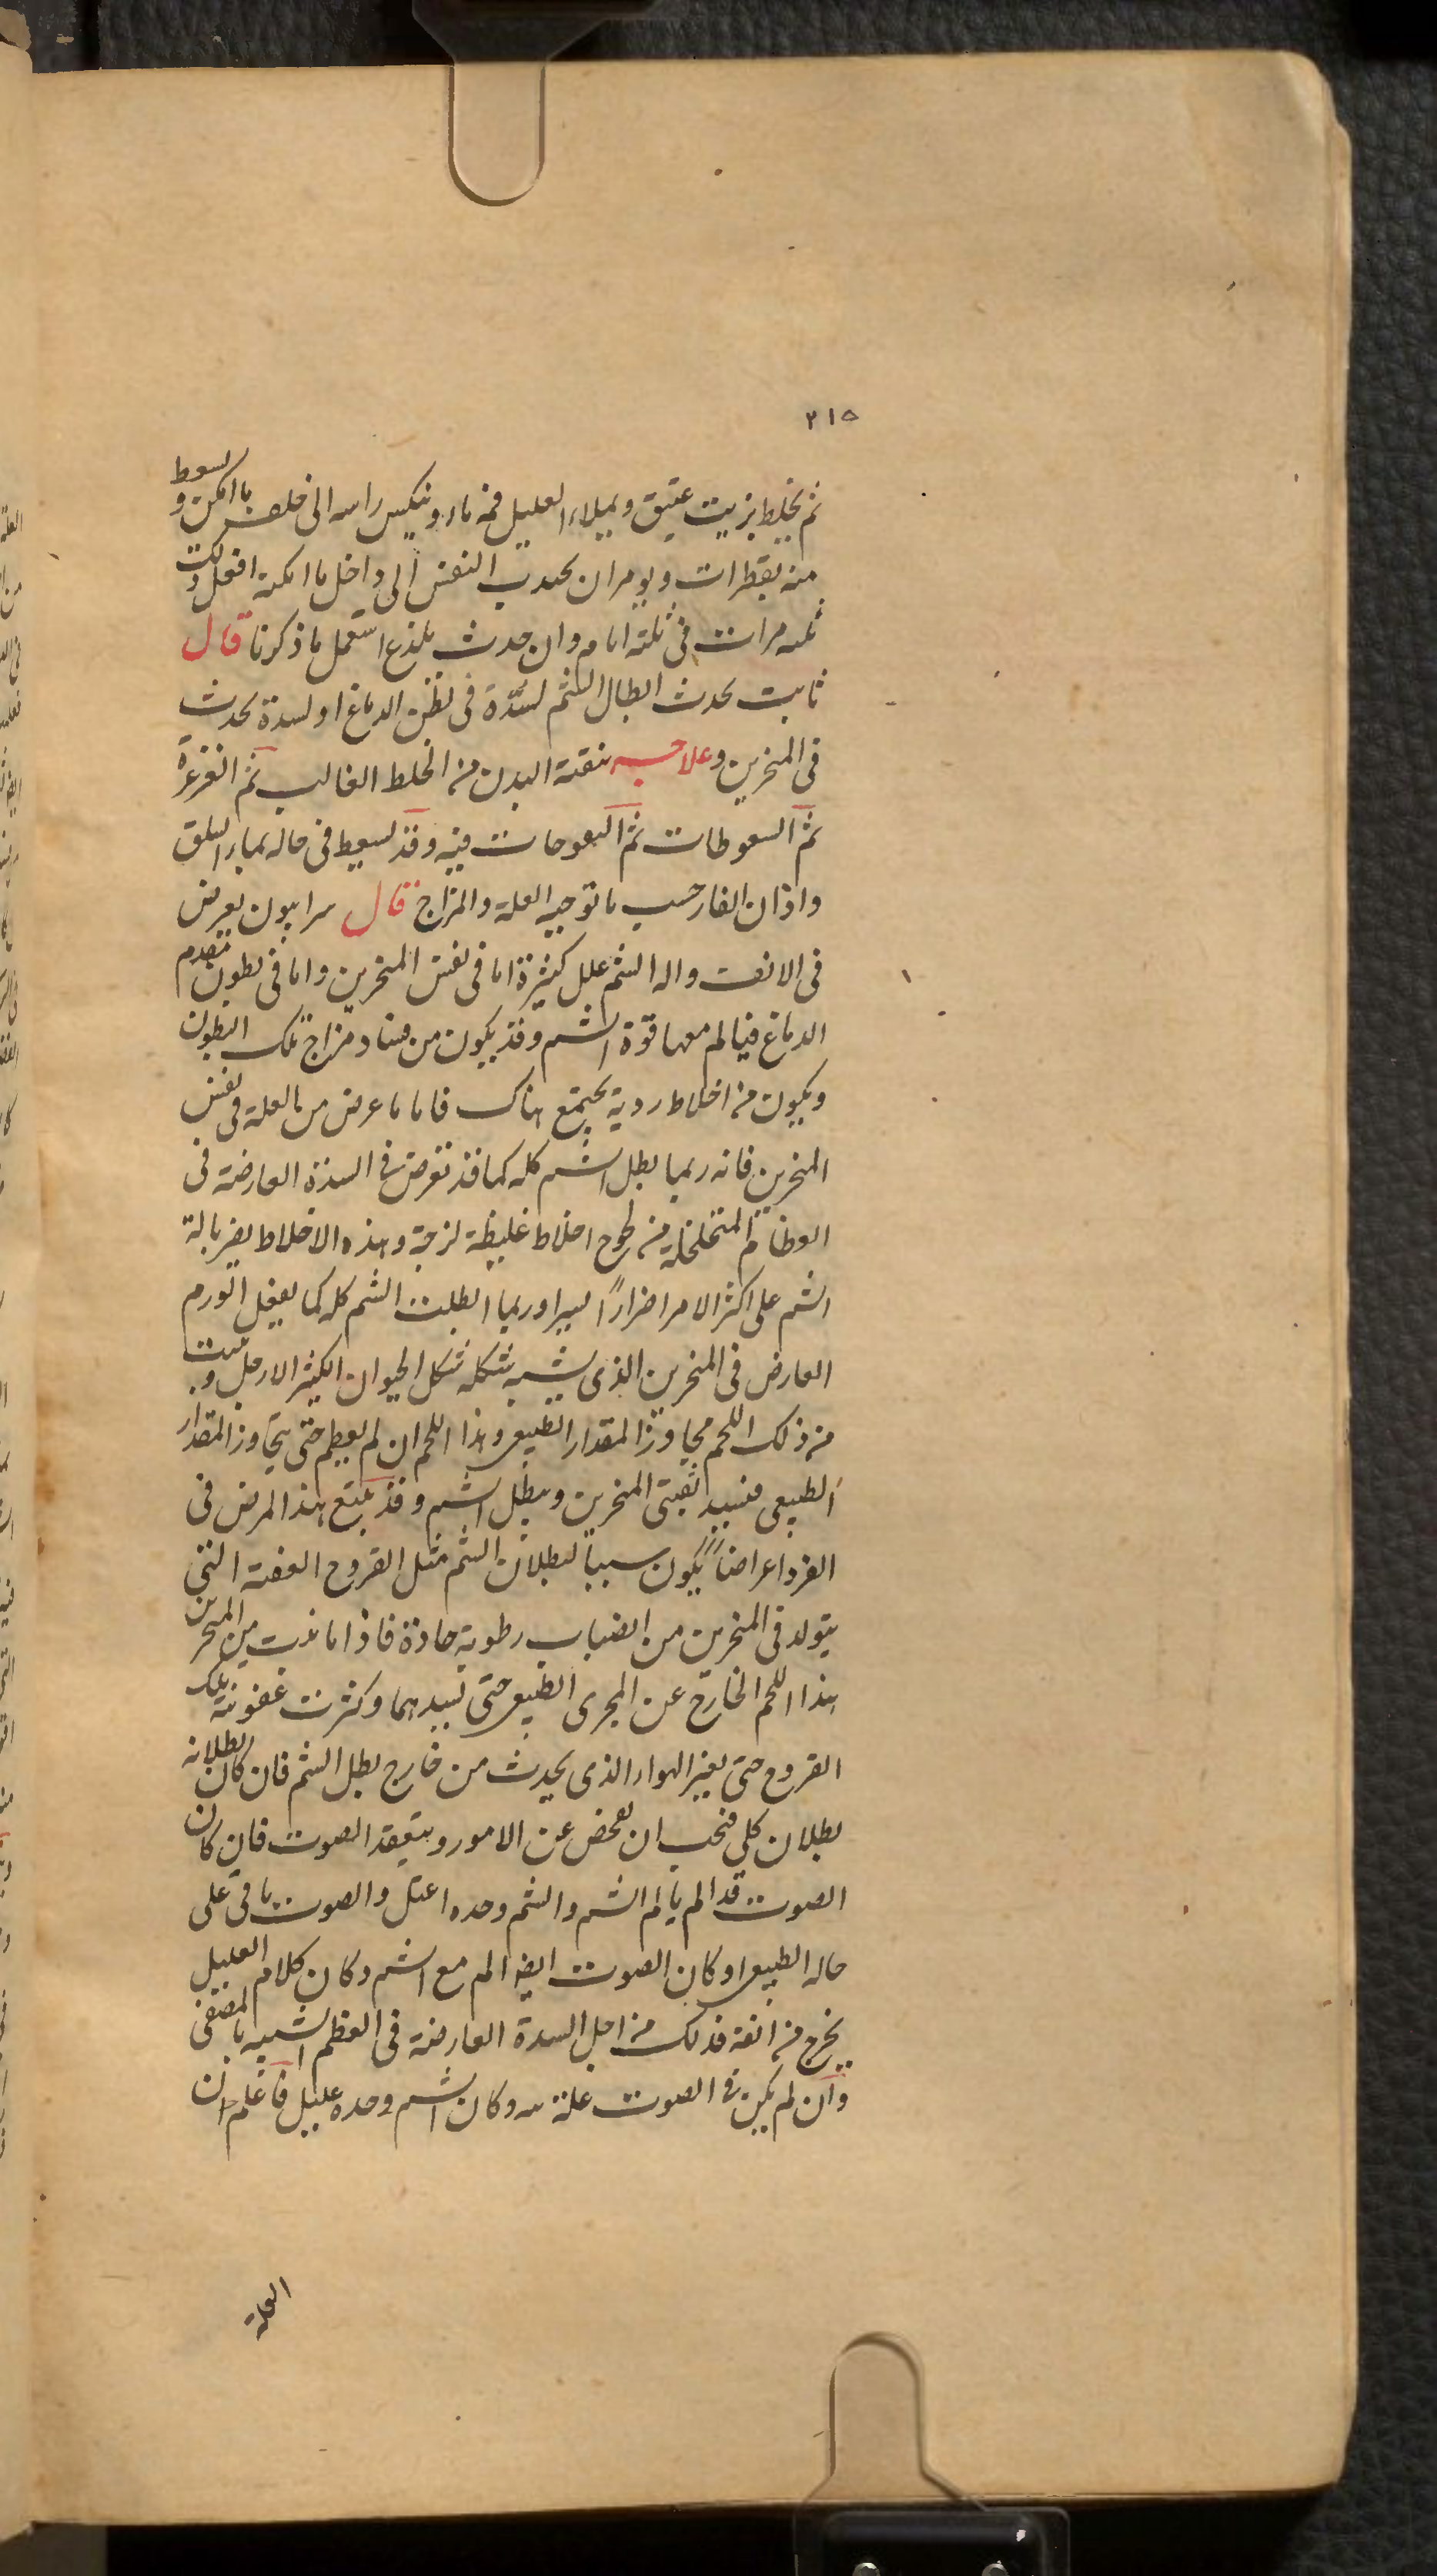 ٣١٥
ثم يخلط بزيت عتيق ويملاء العليل فمه ماء وينكس راسه الى خلف ما امكن ويسعط
منه بقطرات ويومر ان يجدب النفس الى داخل ما امكنه افعل ذلك
ثلثه مرات فى ثلثة ايام وان حدث بلذع استعمل ما ذكرنا قال
ثابت يحدث ابطال الشم لسدّة فى بطن الدماغ او لسدة يحدث
فى المنخرين وعلاجه بنقية البدن من الخلط الغالب ثم الغرغرة
ثم السعوطات ثم البعوحات فيه وقد يسعط فى حاله بماء السلق
واذان الفار حسب ما توجبه العلة والمزاج قال سرابيون يعرض
فى الانف واله الشم علل كثيرة اما فى نفس المنخرين واما فى بطون مقدم
الدماغ فيالم معها قوّة الشم وقد يكون من فساد مزاج تلك البطون
ويكون من اخلاط ردية يجتمع هناك فاما ما عرض من العلة فى نفس
المنخرين فانه ربما بطل الشم كله كما قد تعرض فى السدة العارضة فى
العظام المتخلخلة من لحوج اخلاط غليظة لزجة وهذه الاخلاط يضر بالة
الشم على اكثر الامر اضراراً يسيرا وربما ابطلت الشم كله كما يفعل الورم
العارض فى المنخرين الذى يشبه شكله شكل الحيوان الكثير الارجل و
من ذلك اللحم مجاوز المقدار الطبيعى وهذا اللحم ان لم يعظم حتى يتجاوز المقدار
الطبيعى فيسد ثقبتى المنخرين ويبطل الشم وقد يتبع هذا المرض فى
الفرد اعراضاً يكون سبباً لبطلان الشم مثل القروح العفنة التى
يتولد فى المنخرين من انصباب رطوبة حادة فاذا ما نبت من المنخرين
هذا اللحم الخارج عن المجرى الطبيعى حتى يسدهما وكثرت عفونة تلك
القروح حتى يغير الهواء الذى يحدث من خارج بطل الشم فان كان بطلانه
بطلان كلى فيجب ان يفحص عن الامور ويتفقد الصوت فان كان
الصوت قد الم يالم الشم والشم وحده اعتل والصوت باقى على
حاله الطبيعى او كان الصوت ايضا الم مع الشم وكان كلام العليل
يخرج من انفه فذلك من اجل السدة العارضة فى العظم الشبيه بالمصفى
وان لم يكن فى الصوت علة وكان الشم وحده عليل فاعلم ان
العلة